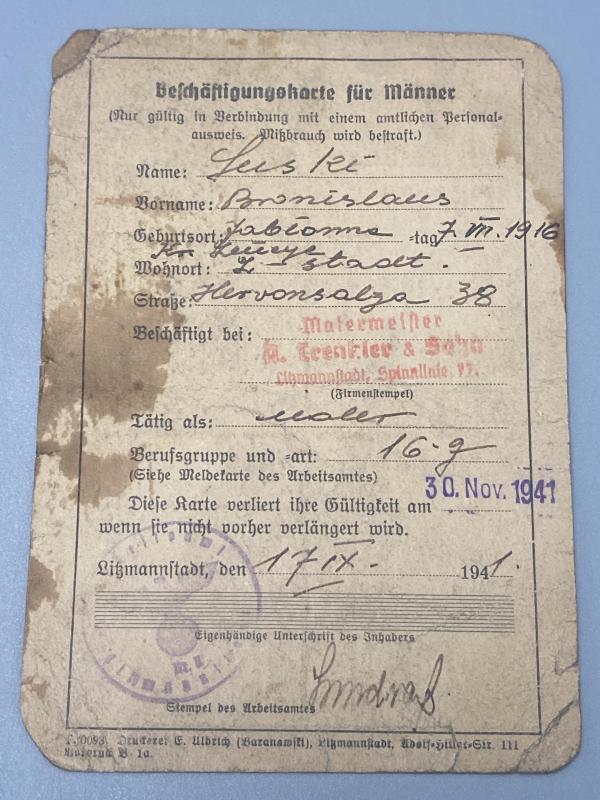 Beschäftigungskarte für Männer
(Nur gültig in Verbindung mit einem amtlichen Personal-
ausweis. Mißbrauch wird bestraft.)
Name: Suski
Vorname: Bronislaus
Geburtsort: -tag 7. III. 1916
Kr.
Wohnort: L-stadt.
Straße: Hervonsalza 38
Beschäftigt bei: Malermeister
A. Trenkler & Sohn
Litzmannstadt, Spinnlinie 97.
(Firmenstempel)
Tätig als: Maler
Berufsgruppe und -art: 16-g
(Siehe Meldekarte des Arbeitsamtes)
Diese Karte verliert ihre Gültigkeit am 30. Nov. 1941
wenn sie nicht vorher verlängert wird.
Litzmannstadt, den 17 IX. 1941.
Eigenhändige Unterschrift des Inhabers
Stempel des Arbeitsamtes
Druckerei E. Ulbrich (Baranowski), Litzmannstadt, Adolf-Hitler-Str. 111
B 1a.